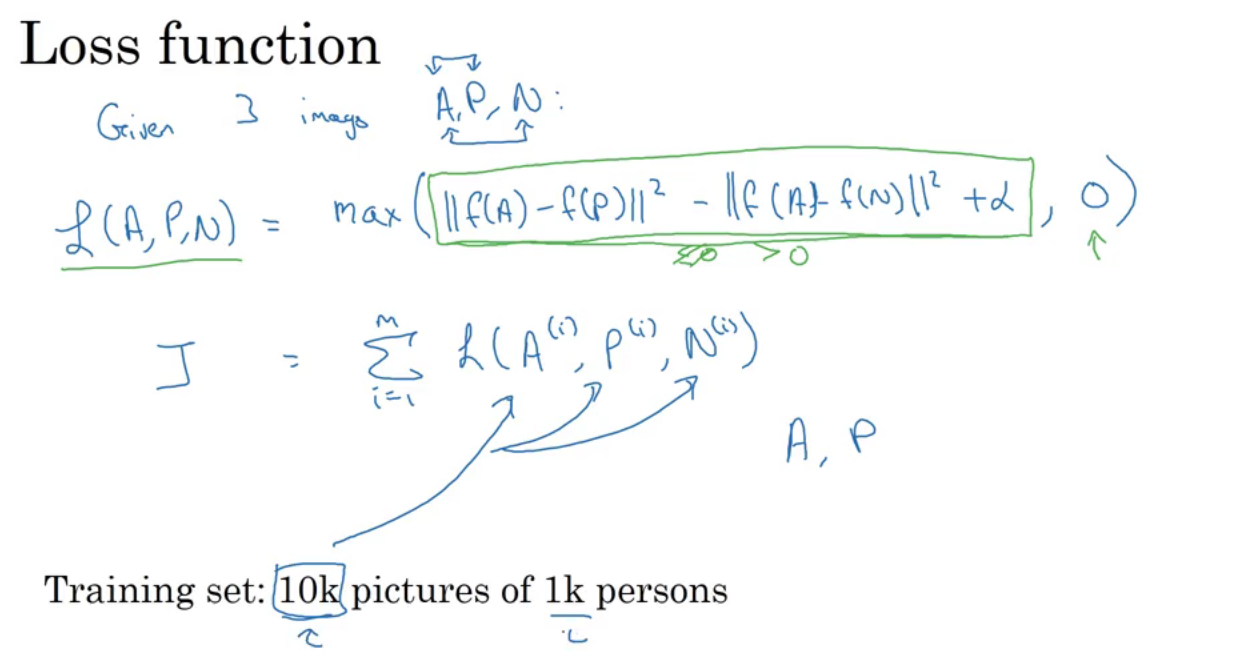 Loss function
Given 3 images A, P, N:
ℒ(A, P, N) = max(||f(A) - f(P)||² - ||f(A) - f(N)||² + α, 0)
> 0
J = Σ_{i=1}^{m} ℒ(A^{(i)}, P^{(i)}, N^{(i)})
A, P
Training set: 10k pictures of 1k persons